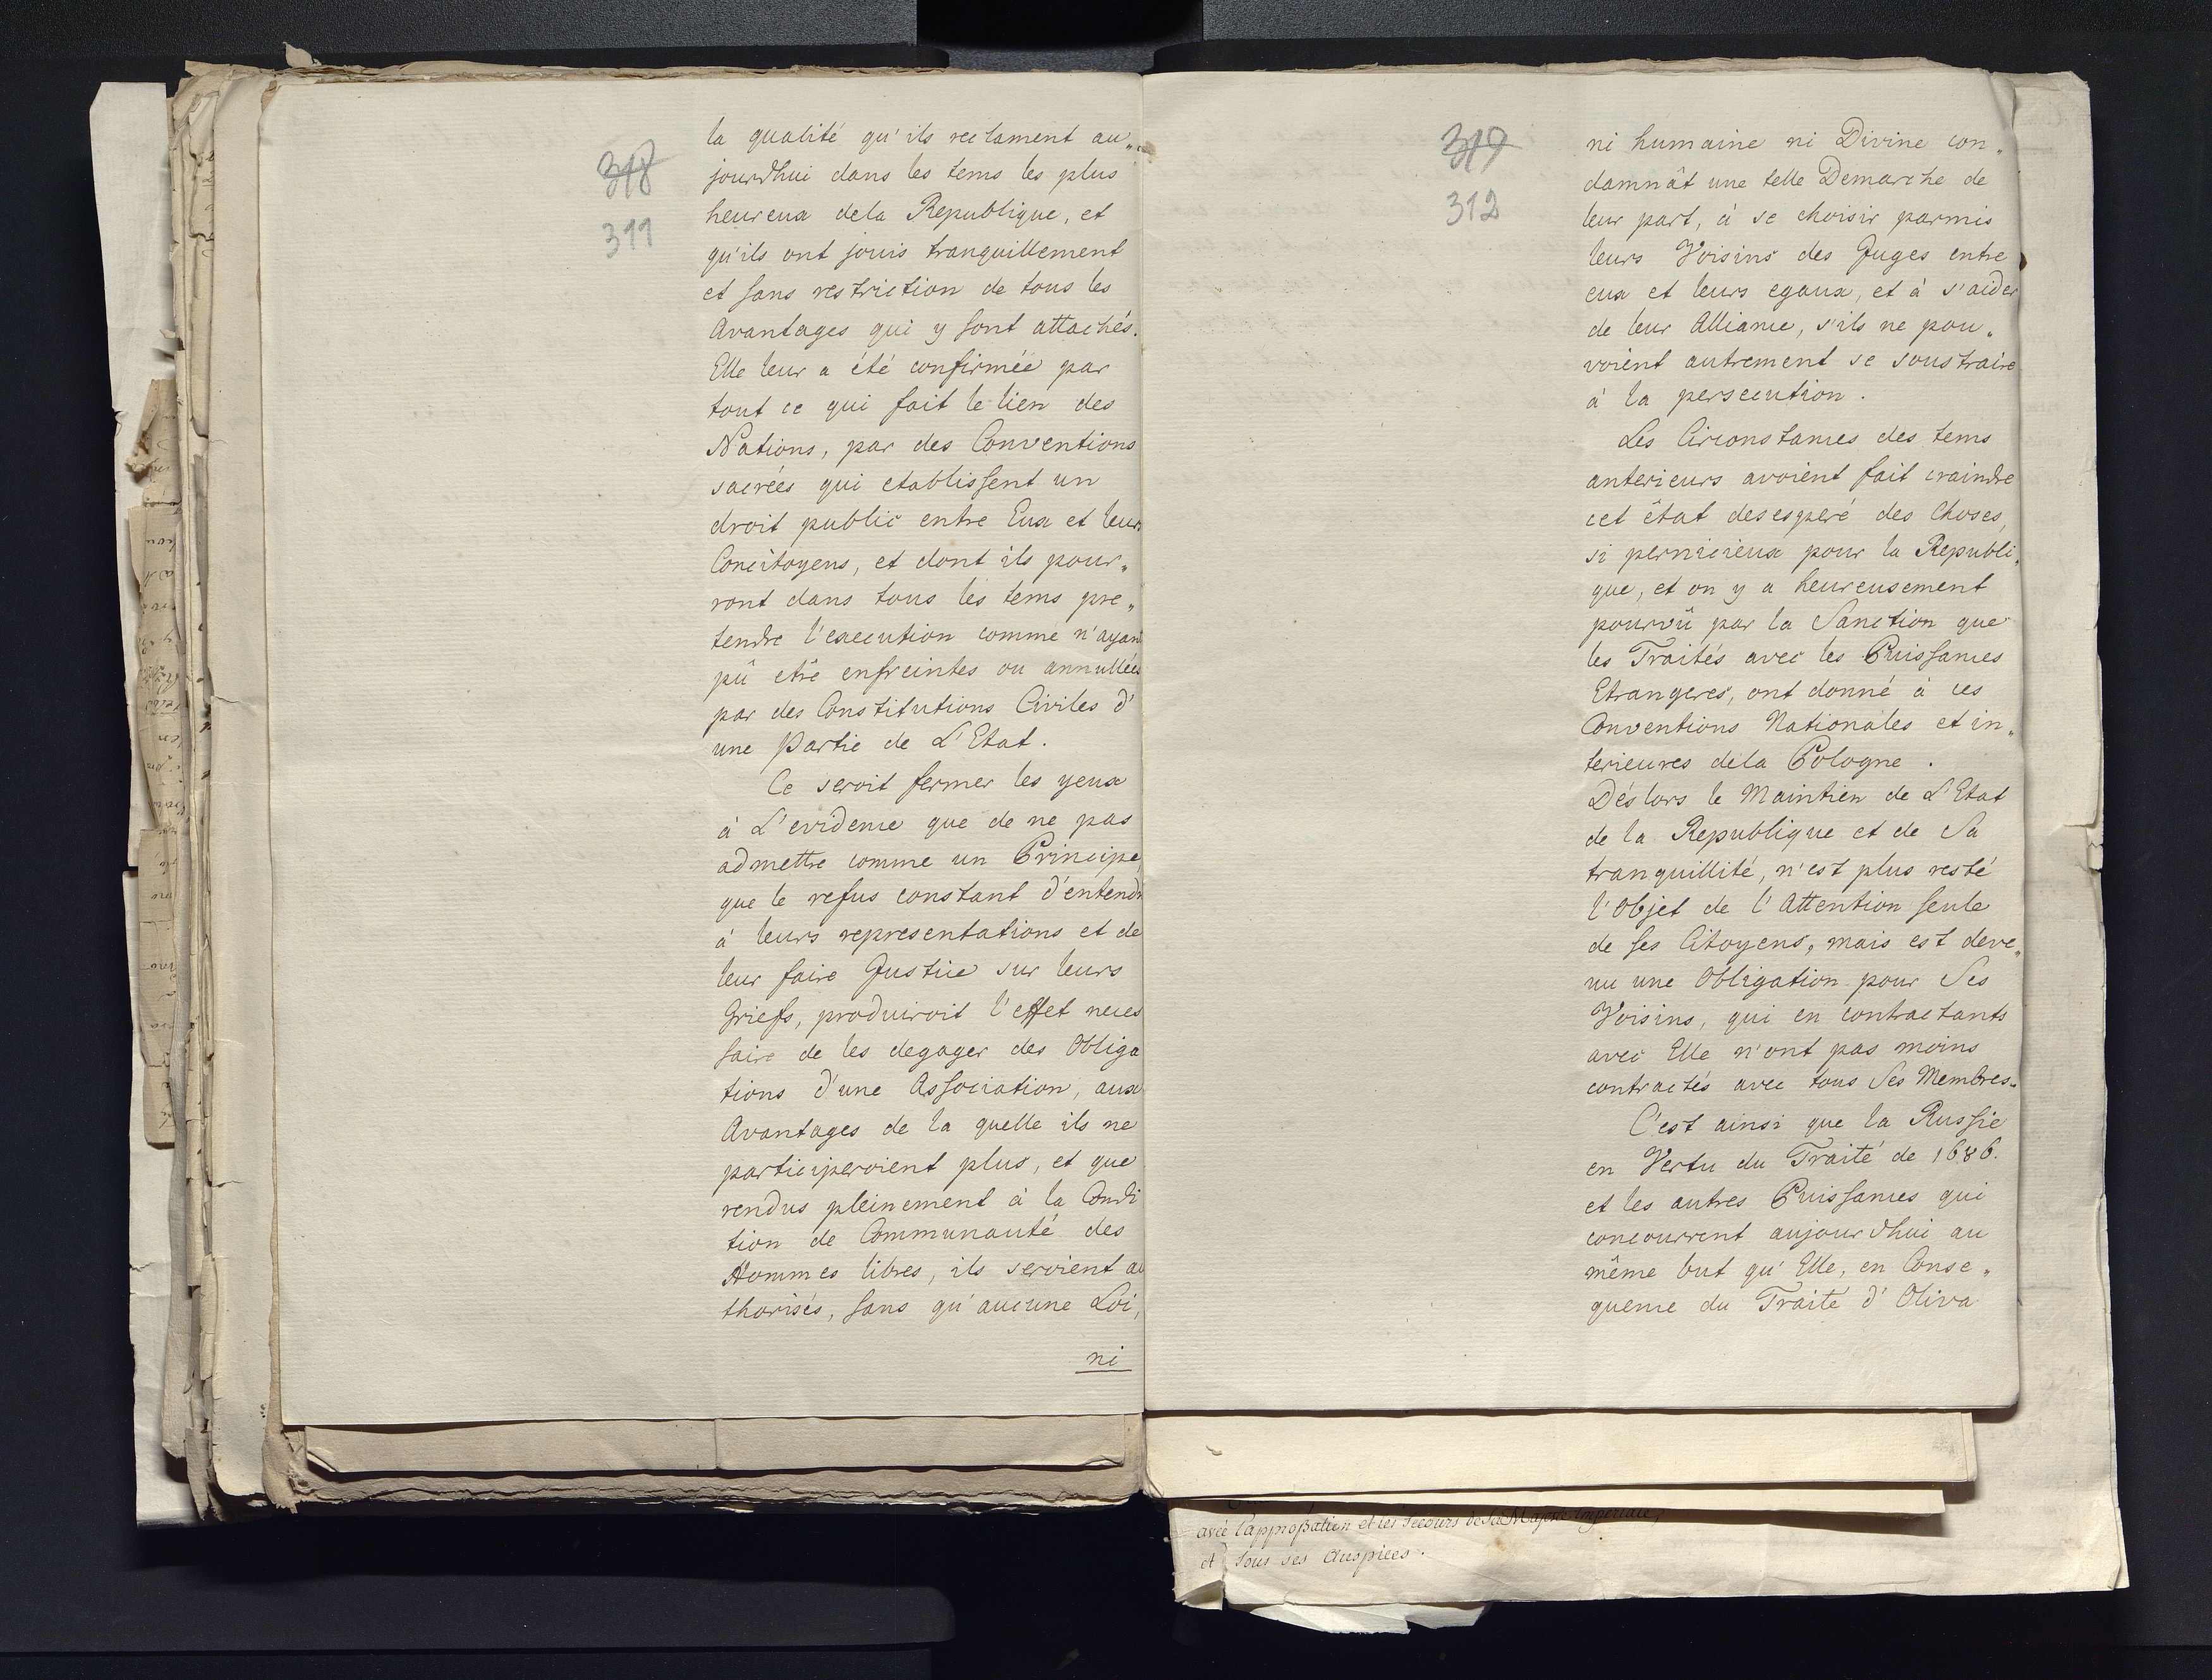 318
311
la qualité qu'ils reclament au„
jourdhui dans les tems les plus
heureux dela Republique, et
qu'ils ont jouis tranquillement
et sans restriction de tous les
Avantages qui y sont attachés.
Elle leur a été confirmée par
tout ce qui fait le lien des
Nations, par des Conventions
sacrées qui etablissent un
droit public entre Eux et leurs
Concitoyens, et dont ils pour„
ront dans tous les tems pre„
tendre l'execution comme n'ayant
pû etre enfreintes ou annullées
par des Constitutions Civiles d'
une Partie de L'Etat.
Ce seroit fermer les yeux
à L'evidence que de ne pas
admettre comme un Principe,
que le refus constant d'entendr
à leurs representations et de
leur faire Justice sur leurs
Griefs, produiroit l'effet neces
saire de les degager des Obliga
tions d'une Association, aux
Avantages de la quelle ils ne
participeroient plus, et que
rendus pleinement à la Condi
tion de Communauté des
Hommes libres, ils seroient au
thorisés, sans qu'aucune Loi,
ni
319
312
ni humaine ni Divine con„
damnât une telle Demarche de
leur part, à se choisir parmis
leurs Voisins des Juges entre
eux et leurs egaux, et à s'aider
de leur Alliance, s'ils ne pou„
voient autrement se soustraire
à la persecution.
Les Circonstances des tems
anterieurs avoient fait craindre
cet êtat desesperé des Choses,
si pernicieux pour la Republi„
que, et on y a heureusement
pourvû par la Sanction que
les Traités avec les Puissances
Etrangeres, ont donné à ces
Conventions Nationales et in„
terieures dela Pologne.
Dès lors le Maintien de L'Etat
de la Republique et de Sa
tranquillité, n'est plus resté
l'Objet de l'Attention seule
de ses Citoyens, mais est deve„
nu une Obligation pour Ses
Voisins, qui en contractants
avec Elle n'ont pas moins
contractés avec tous Ses Membres.
C'est ainsi que la Russie
en Vertu du Traité de 1686.
et les autres Puissances qui
concourrent aujourdhui au
même but qu'Elle, en Conse„
quence du Traité d'Oliva
avec l'approbation et les secours de Sa Majesté Imperiale,
et sous ses Auspices.